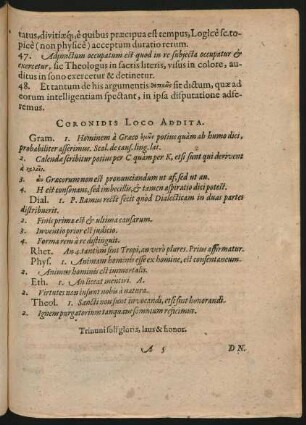 tatus, divitiæq;, è quibus præcipua est tempus, Logicè se. to-
picè (non physicè) acceptum duratio rerum.
47. Adjunctum occupatum est quod in re subjecta occupatur &
exercetur, sic Theologus in sacris literis, visus in colore, au-
ditus in sono exercetur & detinetur.
48. Et tantum de his argumentis sit dictum, quæ ad
eorum intelligentiam spectant, in ipsa disputatione adfe-
remus.
CORONIDIS LOCO ADDITA.
Gram. 1. Hominem à Græco potius quàm ab humo dici,
probabiliter asserimus. Scal. de caus. ling. lat.
2. Calenda scribitur potius per C quàm per K, etsi sunt qui derivent
à
3. Græcorum non est pronunciandum ut af, sed ut an.
4. H est consonans, sed imbecillis, & tamen aspiratio dici potest.
Dial. 1. P. Ramus rectè fecit quod Dialecticam in duas partes
distribuerit.
2. Finis prima est & ultima causarum.
3. Inventio prior est judicio.
4. Forma rem à re distinguit.
Rhet. An 4. tantùm sint Tropi, an verò plures. Prius affirmatur.
Phys. 1. Animam hominis esse ex homine, est consentaneum.
2. Animus hominis est immortalis.
Eth. 1. An liceat mentiri. A.
2. Virtutes non insunt nobis à natura.
Theol. 1. Sancti non sunt invocandi, etsi sint honorandi.
2. Ignem purgatorium tanquam somnium rejicimus.
Triuni soli gloria, laus & honor.
A 5 DN.